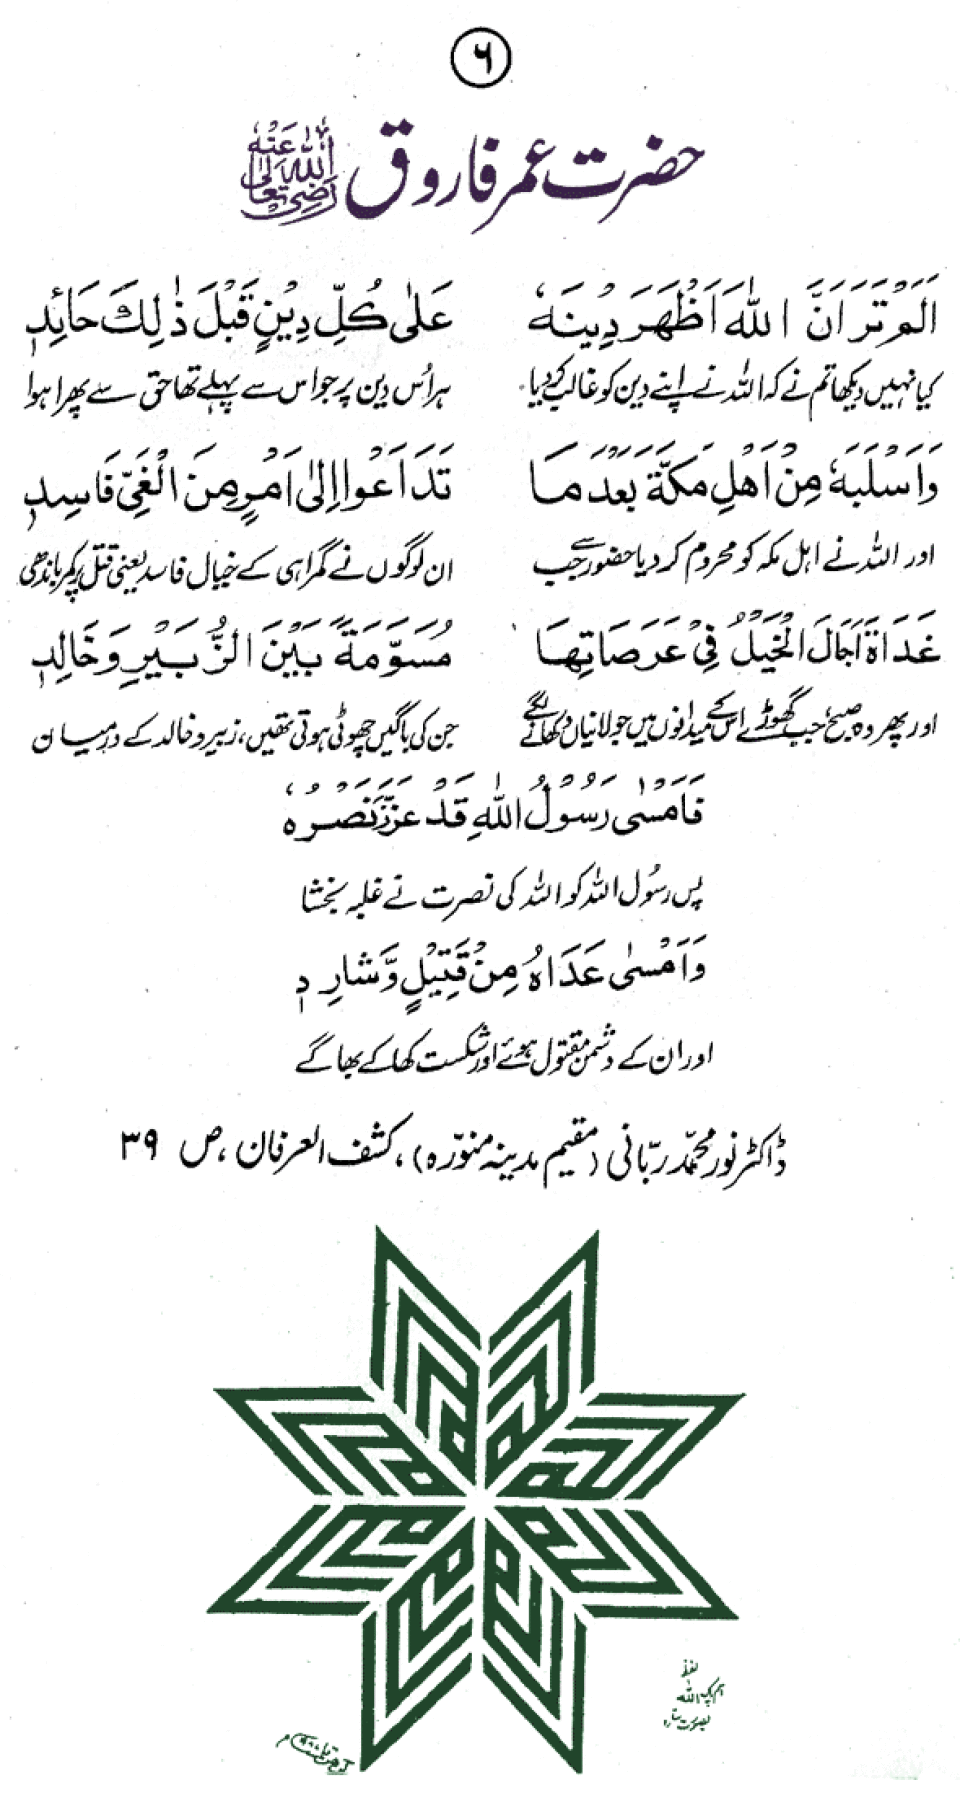 ۶
حضرت عمر فاروق رضی اللہ تعالیٰ عنہ
اَلَمْ تَرَ اَنَّ اللهَ اَظْهَرَ دِيْنَهٗ عَلٰى كُلِّ دِيْنٍ قَبْلَ ذٰلِكَ حَائِدٖ
کیا نہیں دیکھا تم نے کہ اللہ نے اپنے دین کو غالب کر دیا ہر اُس دین پر جو اس سے پہلے تھا حق سے پھرا ہوا
وَاَسْلَبَهٗ مِنْ اَهْلِ مَكَّةَ بَعْدَ مَا تَدَاعَوْا اِلٰى اَمْرٍ مِنَ الْغَيِّ فَاسِدٖ
اور اللہ نے اہل مکہ کو محروم کر دیا حضور سے جب ان لوگوں نے گمراہی کے خیال فاسد یعنی قتل پر کمر باندھی
غَدَاةَ اَجَالَ الْخَيْلُ فِيْ عَرَصَاتِهَا مُسَوَّمَةً بَيْنَ الزُّبَيْرِ وَخَالِدٖ
اور پھر وہ صبح، جب گھوڑے اس کے میدانوں میں جولانیاں دکھانے لگے جن کی باگیں چھوٹی ہوتی تھیں، زبیر و خالد کے درمیان
فَاَمْسٰى رَسُوْلُ اللهِ قَدْ عَزَّ نَصْرُهٗ
پس رسُول اللہ کو اللہ کی نصرت نے غلبہ بخشا
وَاَمْسٰى عَدَاهُ مِنْ قَتِيْلٍ وَّشَارِدٖ
اور ان کے دشمن مقتول ہوئے اور شکست کھا کے بھاگے
ڈاکٹر نور محمّد ربّانی (مقیم مدینہ منوّرہ)، کشف العرفان، ص ۳۹
لفظ
اللہ
بصورت ستارہ